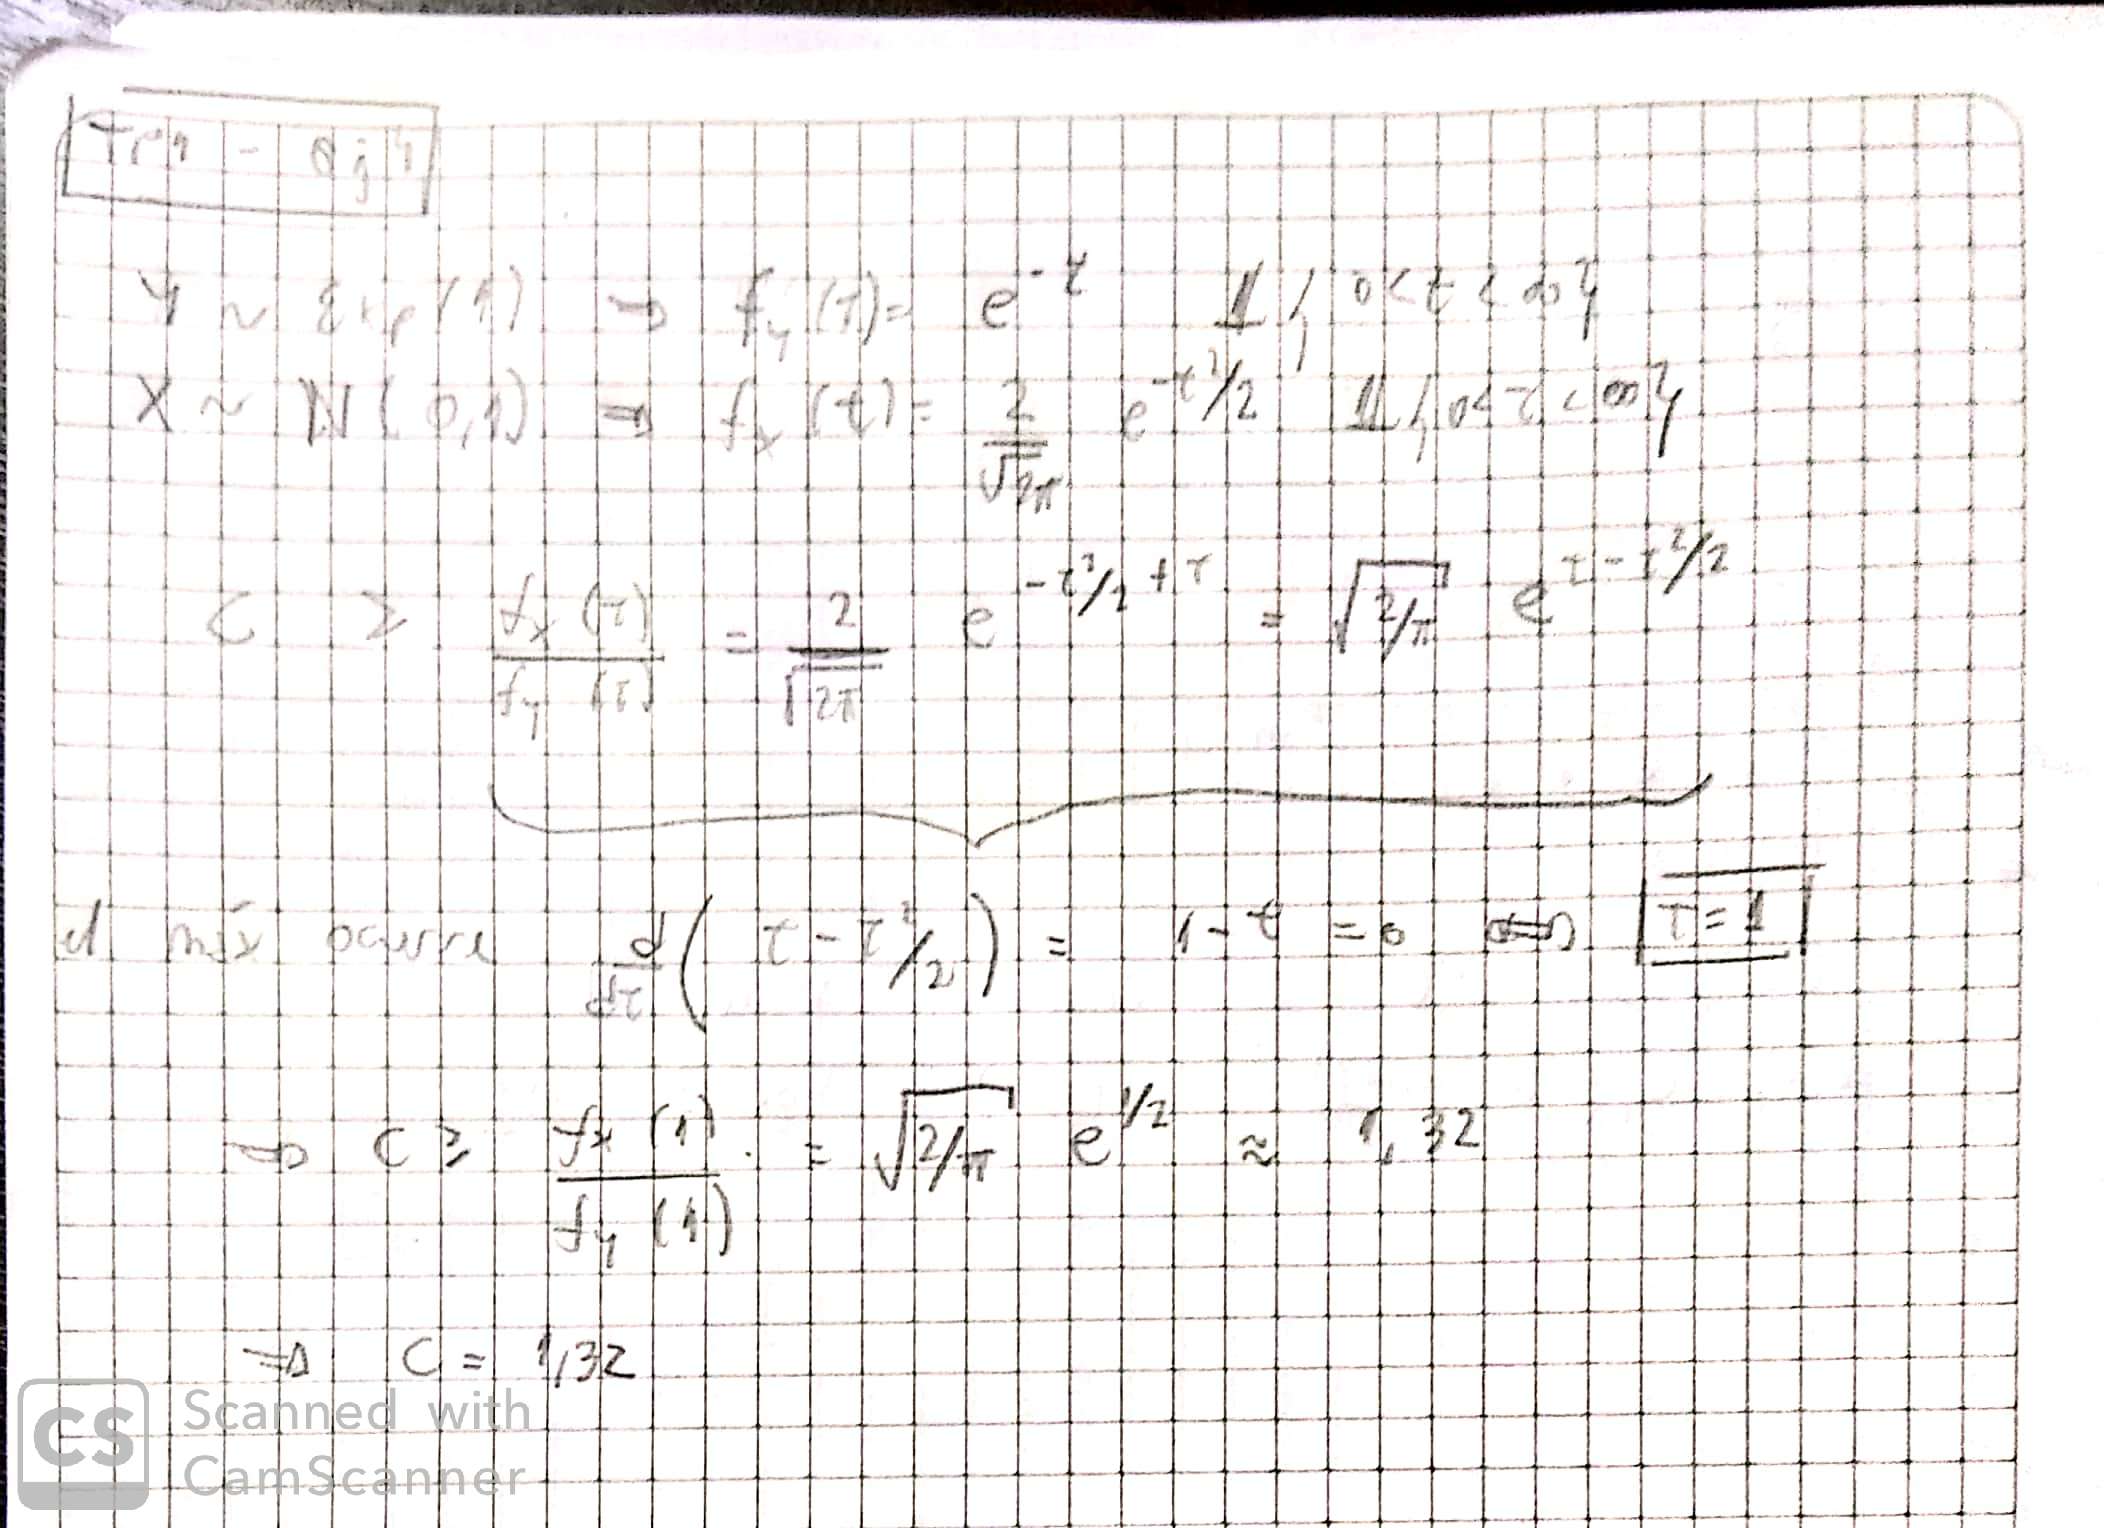 TP1 - Ej 4
Y ~ Exp(1) ⇒ f_Y(t) = e^{-t} 𝟙{0<t<∞}
X ~ N(0,1) ⇒ f_X(t) = 2/√2π e^{-t²/2} 𝟙{0<t<∞}
C ≥ f_X(t)/f_Y(t) = 2/√2π e^{-t²/2 + t} = √(2/π) e^{t - t²/2}
el máx ocurre d/dt (t - t²/2) = 1 - t = 0 ⇔ t = 1
⇒ C ≥ f_X(1)/f_Y(1) = √(2/π) e^{1/2} ≈ 1,32
⇒ C = 1,32
CS Scanned with
CamScanner